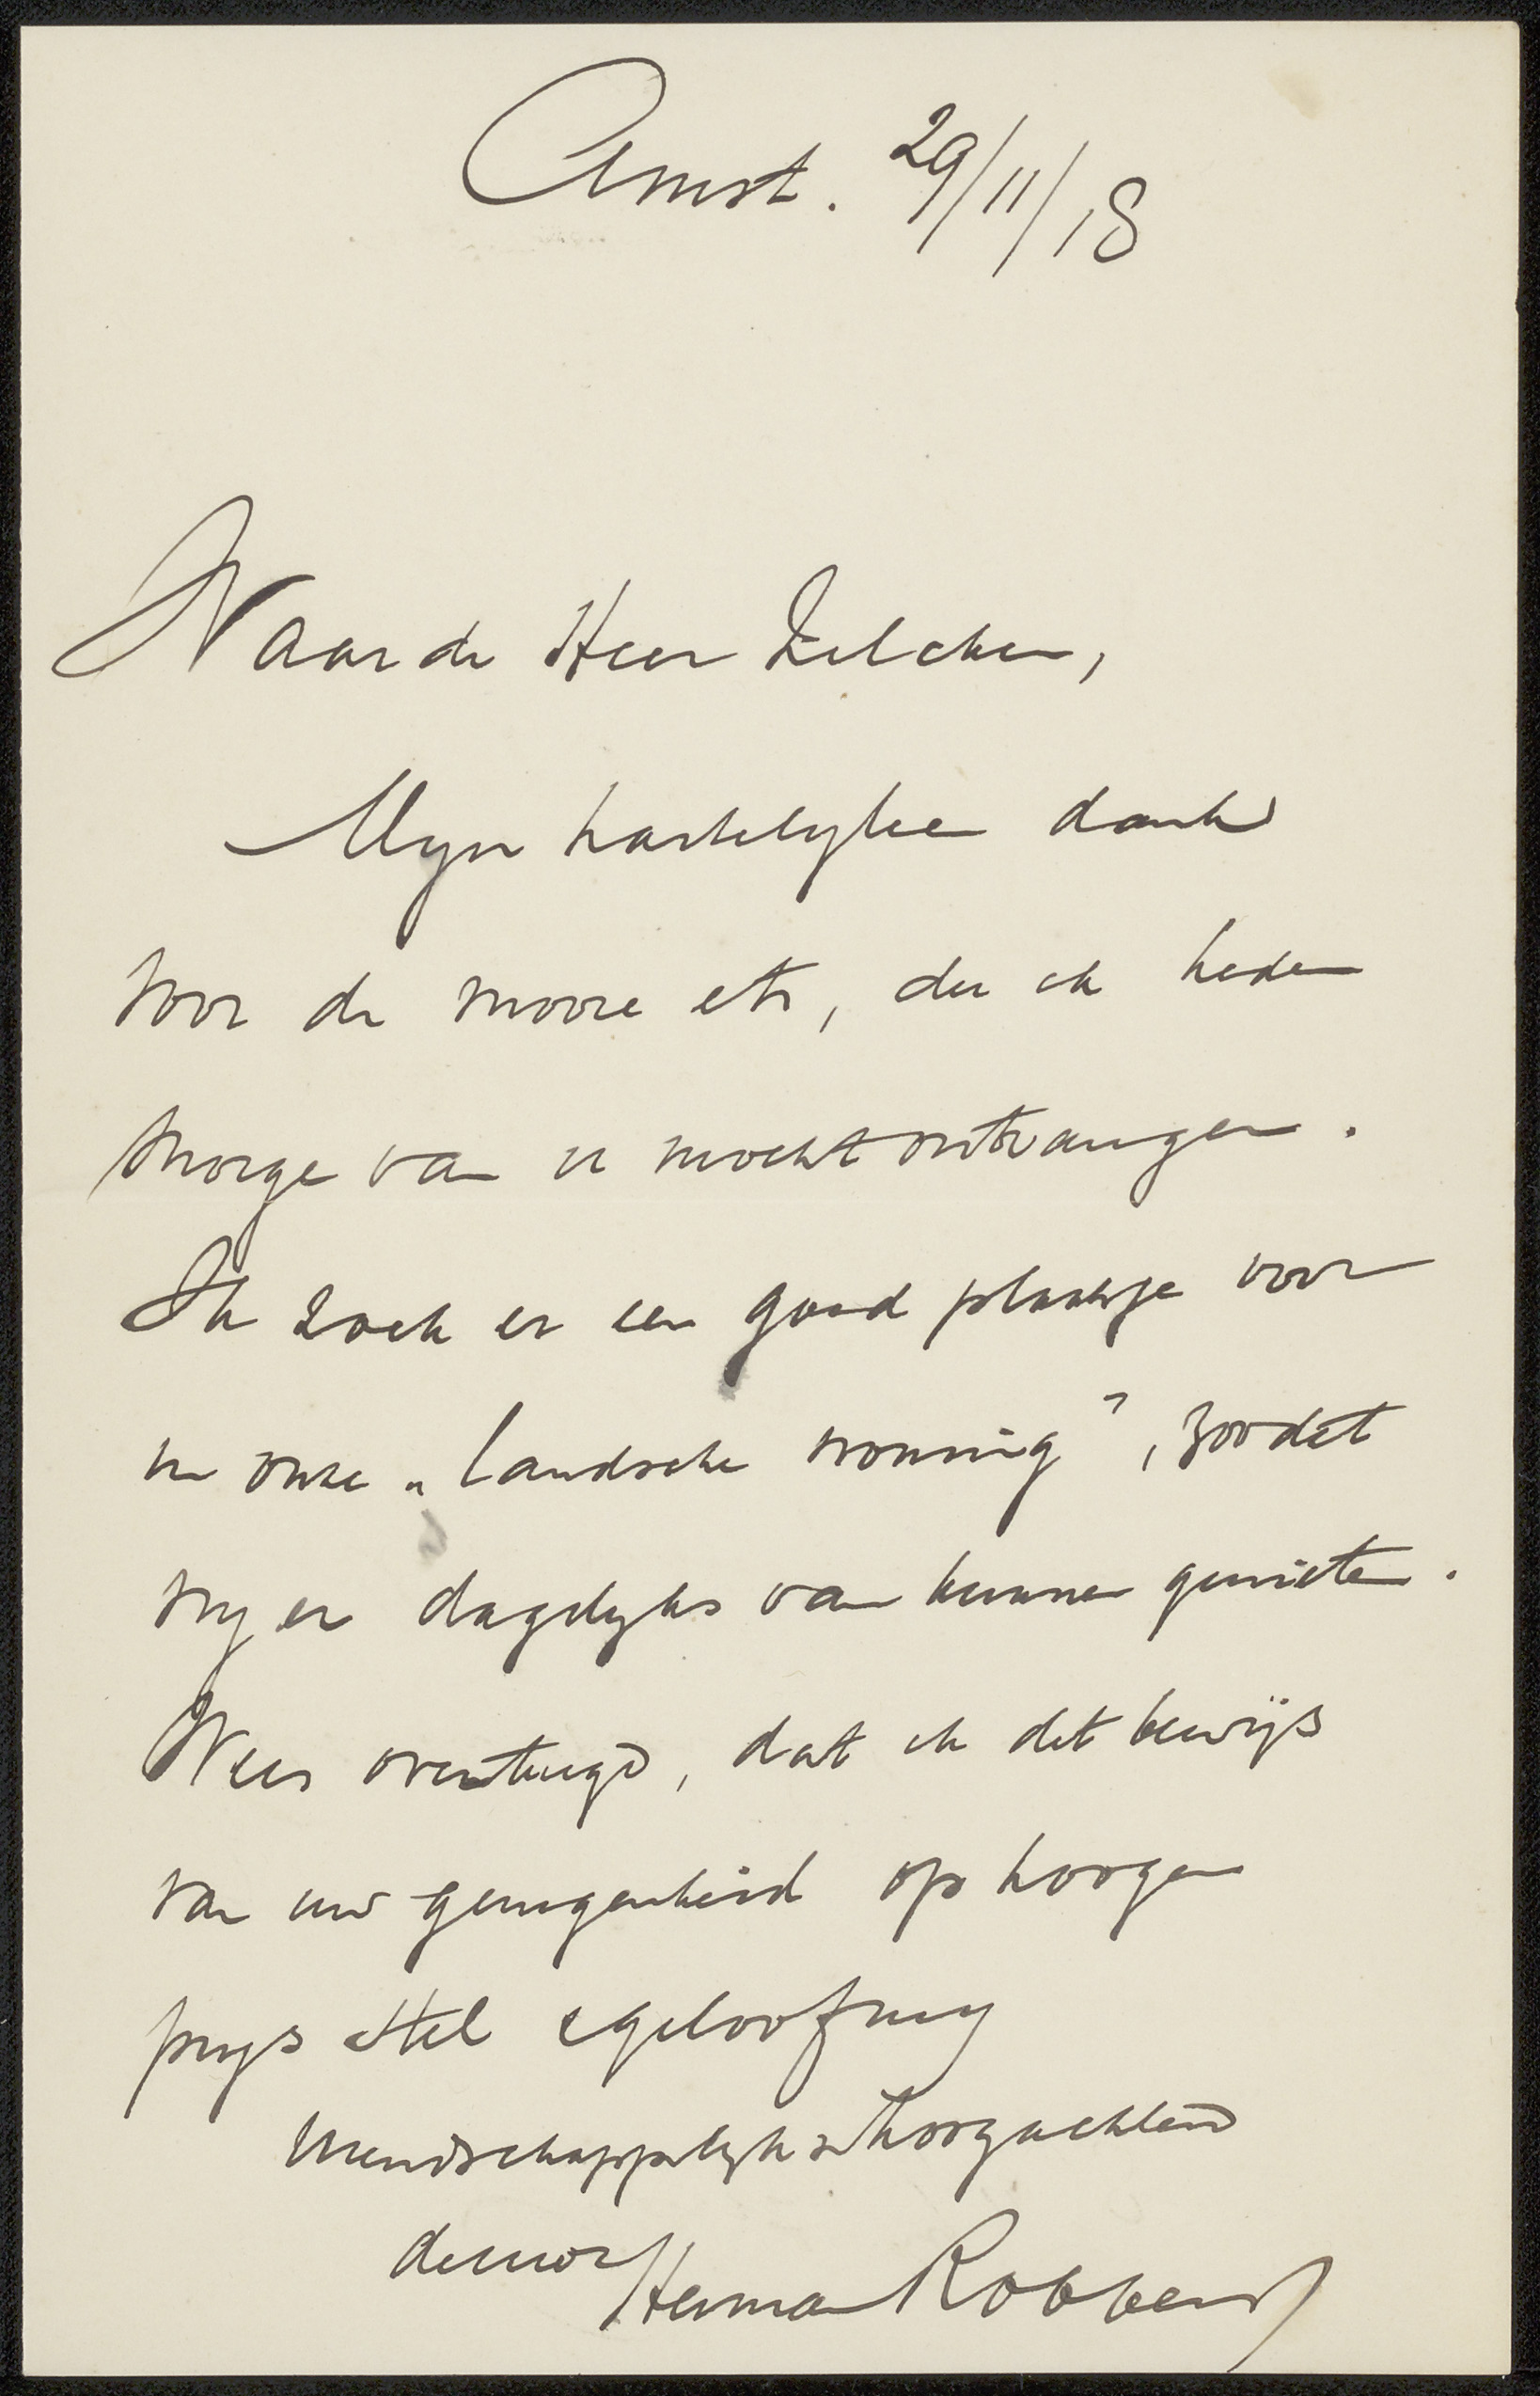 Amst. 29/11/18
Waarde Heer Zilcken,
Mijn hartelijken dank
voor de mooie ets, die ik heden
morge van u mocht ontvangen.
Ik zoek er een goed plaatsje voor
in onze „landsche woning”, zoodat
wij er dagelijks van kunnen genieten.
Wees overtuigd, dat ik dit bewijs
van uw genegenheid op hoogen
prijs stel & geloof mij
vriendschappelijk en hoogachtend
de uwe
Herman Robbers